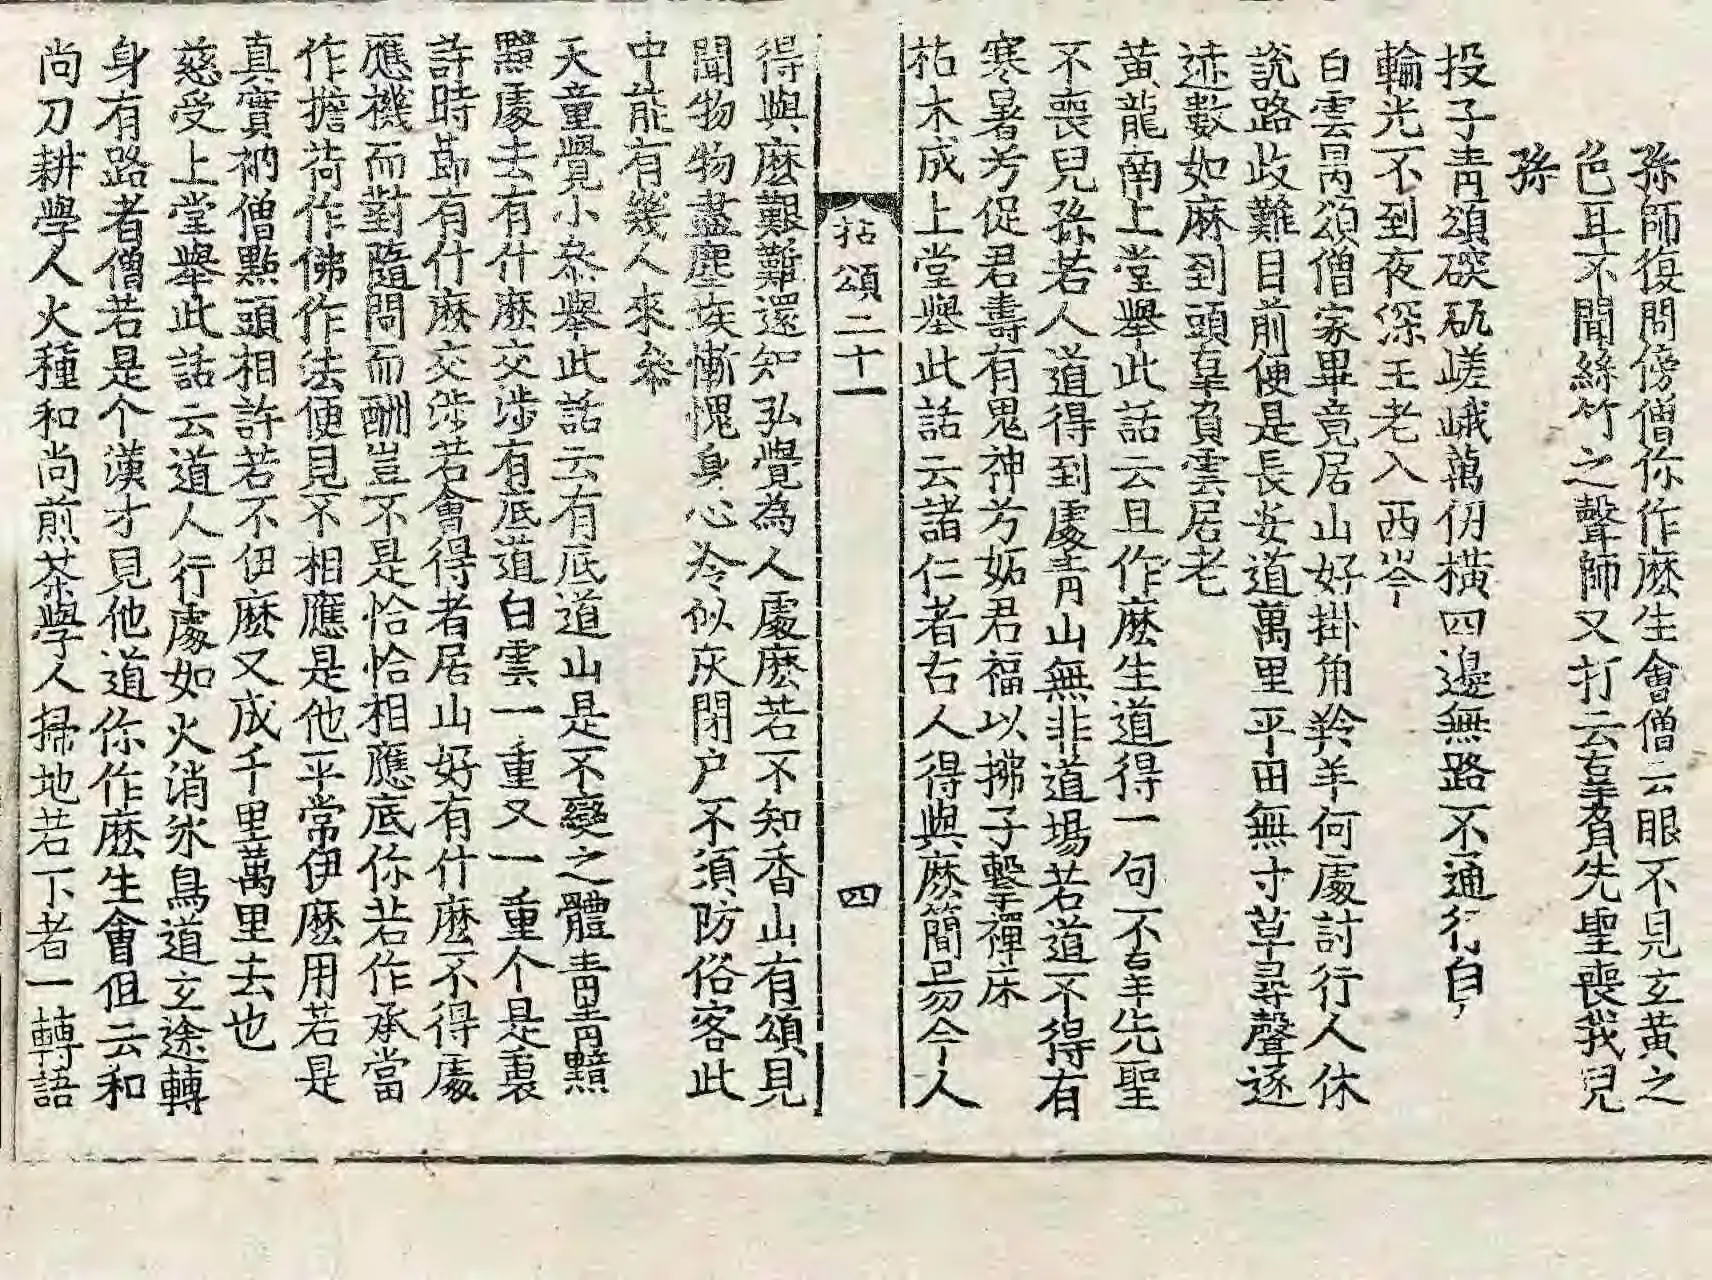 孫師復問傍僧你作麽生會僧云眼不見玄黃之
色耳不聞絲竹之聲師又打云辜負先聖喪我兒
孫
投子靑頌磎砙嵯峨萬仞橫四邊無路不通行白
輪光不到夜深王老入西岑
白雲昺頌僧家畢竟居山好掛角羚羊何處討行人休
說路歧難目前便是長安道萬里平田無寸草尋聲逐
迹數如麻到頭辜負雲居老
黃龍南上堂擧此話云且作麽生道得一句不辜先聖
不喪兒孫若人道得到處靑山無非道場若道不得有
寒暑兮促君壽有鬼神兮妬君福以拂子擊禪床
枯木成上堂擧此話云諸仁者古人得與麽簡易今人
拈頌二十一 四
得與麽艱難還知弘覺為人處麽若不知香山有頌見
聞物物盡塵埃慚愧身心冷似灰閉户不須防俗客此
中能有幾人來叅
天童覺小叅擧此話云有底道山是不變之體靑靑黯
黯處去有什麽交涉有底道白雲一重又一重个是裏
許時節有什麽交涉若會得者居山好有什麽不得處
應機而對隨問而酬豈不是恰恰相應底你若作承當
作擔荷作佛作法便見不相應是他平常伊麽用若是
真實衲僧點頭相許若不伊麽又成千里萬里去也
慈受上堂擧此話云道人行處如火消氷鳥道玄途轉
身有路者僧若是个漢才見他道你作麽生會但云和
尚刀耕學人火種和尚煎茶學人掃地若下者一轉語